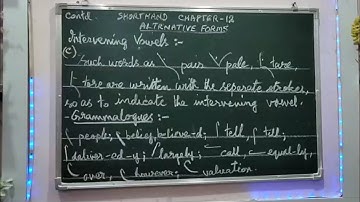 Contd. SHORTHAND CHAPTER-12
ALTRNATIVE FORMS
Intervening Vowels :-
(C) Such words as pair, pale, tare,
tare are written with the separate strokes,
so as to indicate the intervening vowel.
- Grammalogues :-
people; belief, believe-d; tell, till;
deliver-ed-y; largely; call, equal-ly,
over, however; valuation.